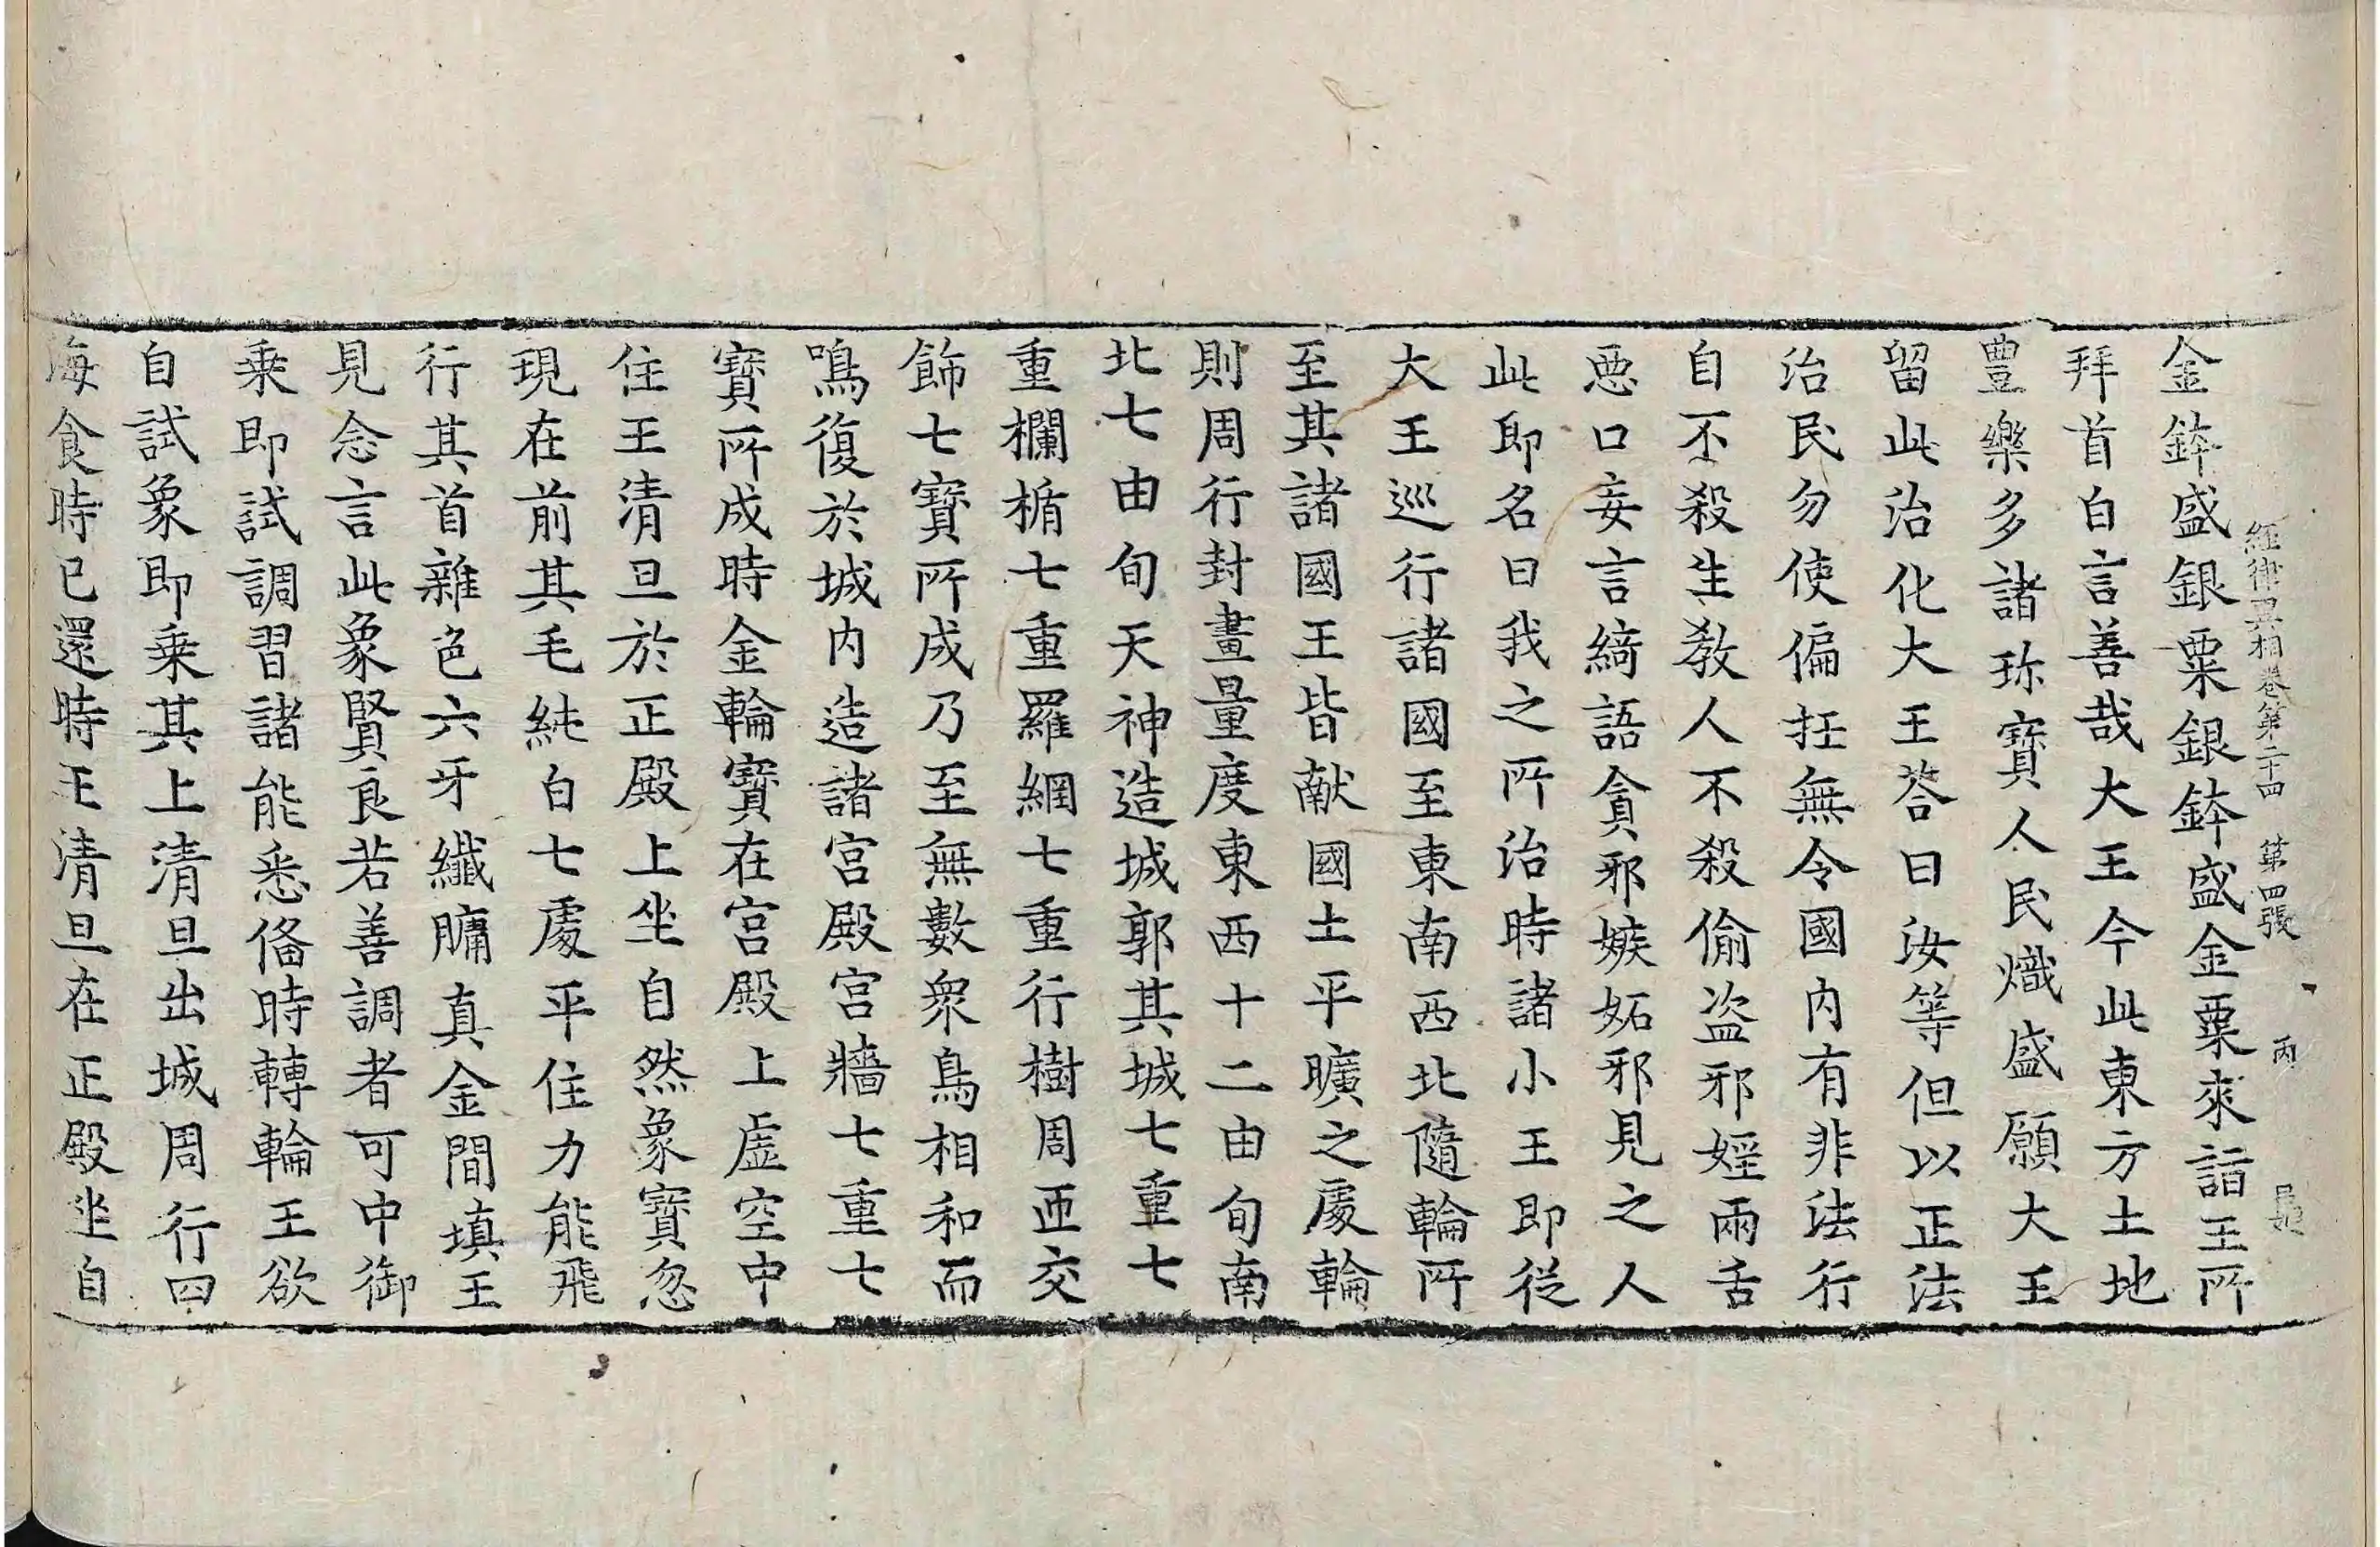 經律異相卷第二十四 第四張 丙
金鉢盛銀粟銀鉢盛金粟來詣王所
拜首白言善哉大王今此東方土地
豊樂多諸珎寶人民熾盛願大王
留此治化大王荅曰汝等但以正法
治民勿使偏抂無令國内有非法行
自不殺生教人不殺偷盗邪婬兩舌
悪口妄言綺語貪邪嫉妬邪見之人
此即名曰我之所治時諸小王即従
大王巡行諸國至東南西北隨輪所
至其諸國王皆献國土平曠之處輪
則周行封畫量度東西十二由旬南
北七由旬天神造城郭其城七重七
重欄楯七重羅網七重行樹周匝交
飾七寶所成乃至無數衆鳥相和而
鳴復於城内造諸宮殿宮牆七重七
寶所成時金輪寶在宮殿上虚空中
住王清旦於正殿上坐自然象寶忽
現在前其毛純白七處平住力能飛
行其首雜色六牙纖𦟛真金間填王
見念言此象賢良若善調者可中御
乗即試調習諸能悉俻時轉輪王欲
自試象即乗其上清旦出城周行四
海食時已還時王清旦在正殿坐自